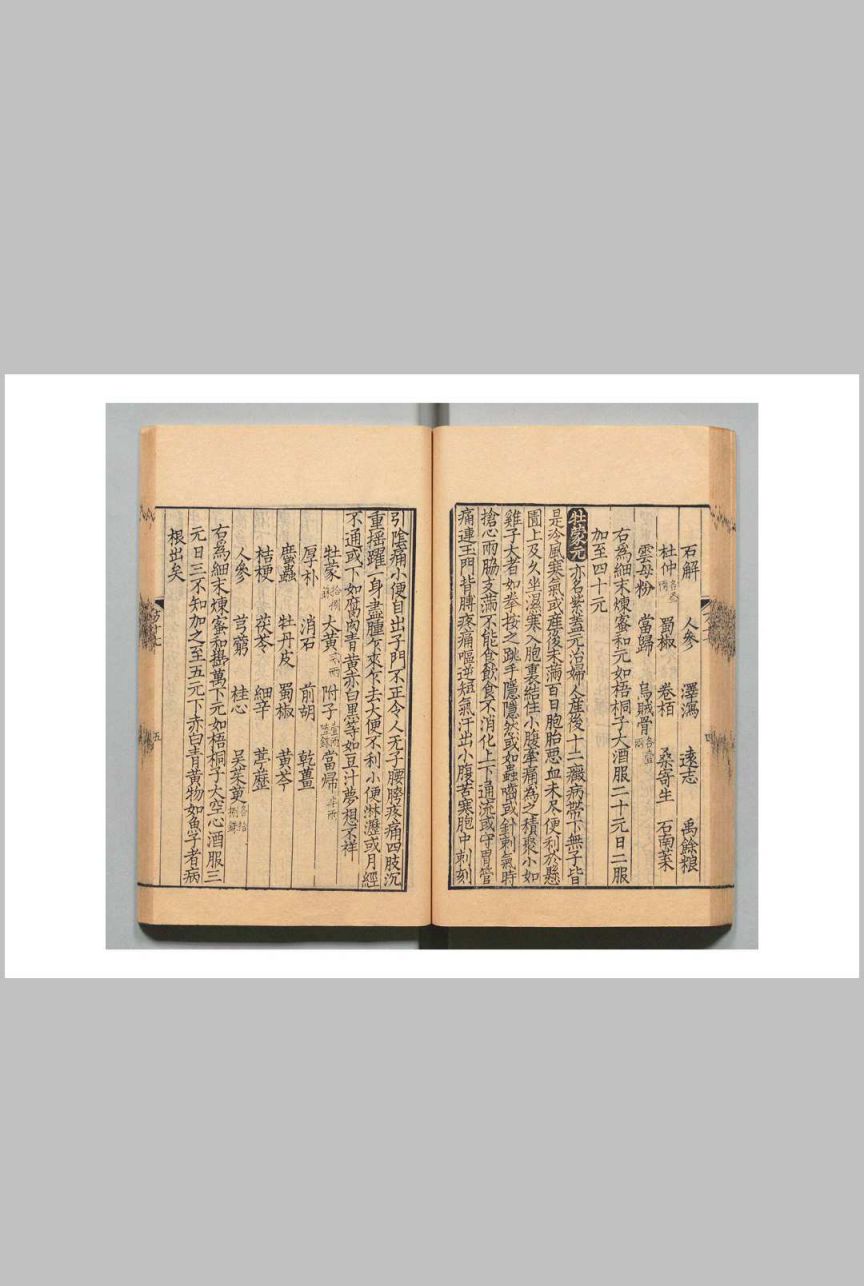 石解 人參 澤瀉 遠志 禹餘粮
杜仲各叁兩 蜀椒 卷栢 桑寄生 石南菜
雲母粉 當歸 烏賊骨各壹兩
右為細末煉蜜和元如梧桐子大酒服二十元日二服
加至四十元
牡蒙元 亦名紫蓋元治婦人産後十二癥病帶下無子皆
是冷風寒氣或産後未滿百日胞胎惡血未尽便利於懸
圊上及久坐濕寒入胞裏結住小腹牽痛為之積聚小如
雞子大者如拳按之跳手隱隱然或如蟲嚙或針刺氣時
搶心兩脇支滿不能食飲食不消化上下通流或守胃管
痛連玉門背膊疼痛嘔逆短氣汗出小腹苦寒胞中刺刻
引陰痛小便自出子門不正令人无子腰胯疼痛四肢沉
重揺躍一身盡腫乍來乍去大便不利小便淋瀝或月經
不通或下如腐肉青黄赤白黒等如豆汁夢想不祥
牡蒙拾捌銖 大黄 附子 當歸
厚朴 消石 前胡 乾薑
䗪蟲 牡丹皮 蜀椒 黄芩
桔梗 茯苓 細辛 葶藶
人參 芎藭 桂心 吴茱萸各拾捌銖
右為細末煉蜜和擣萬下元如梧桐子大空心酒服三
元日三不知加之至五元下赤白青黄物如魚子者病
根出矣
四
五